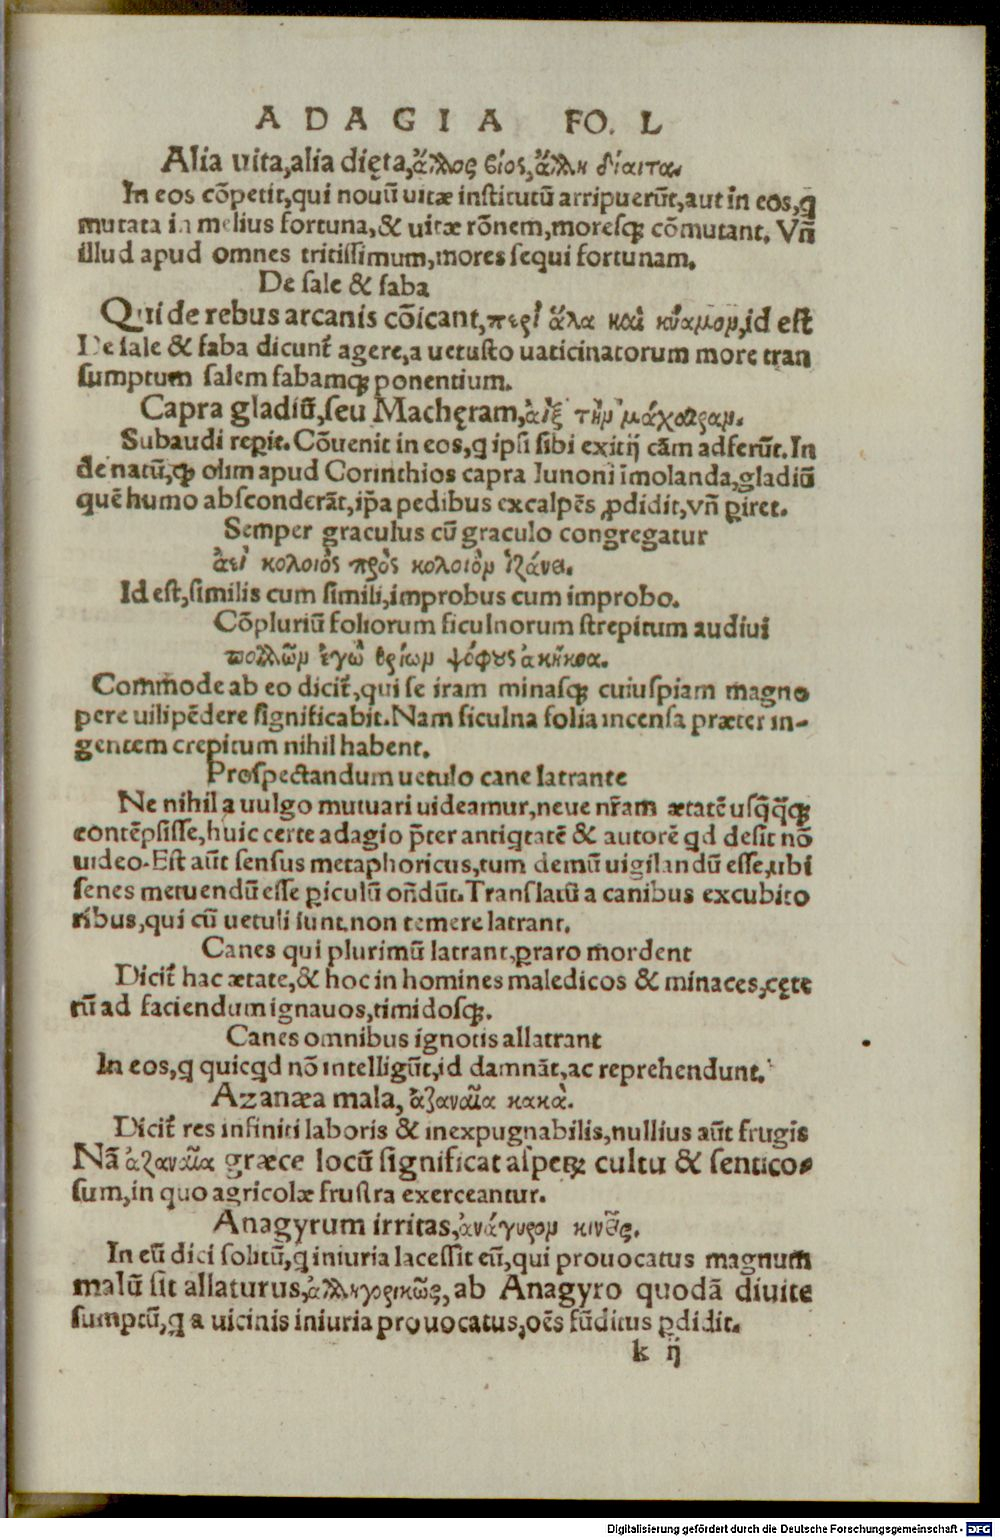 ADAGIA FO. L
Alia uita,alia dięta,ἄλλος βίος,ἄλλη δίαιτα.
In eos cõpetit,qui nouũ uitæ institutũ arripuerũt,aut in eos,q̃
mutata in melius fortuna,& uitæ rõnem,moresqꝫ cõmutant. Vñ
illud apud omnes tritissimum,mores sequi fortunam.
De sale & faba
Qui de rebus arcanis cõicant,περὶ ἅλα καὶ κύαμον,id est
De sale & faba dicunt̃ agere,a uetusto uaticinatorum more tran
sumptum salem fabamqꝫ ponentium.
Capra gladiũ,seu Machęram,ἀὶξ τὴν μάχαιραν.
Subaudi reꝑit. Cõuenit in eos,q ipsi sibi exitij cãm adferũt. In
de natũ,ꝙ olim apud Corinthios capra Iunoni ĩmolanda,gladiũ
quẽ humo absconderãt,ip̃a pedibus excalpẽs ꝓdidit,vñ ꝑiret.
Semper graculus cũ graculo congregatur
ἀεὶ κολοιὸς πρὸς κολοιὸν ἱζάνει.
Id est,similis cum simili,improbus cum improbo.
Cõpluriũ foliorum ficulnorum strepitum audiui
πολλῶν ἐγὼ θρίων ψόφους ἀκήκοα.
Commode ab eo dicit̃,qui se iram minasqꝫ cuiuspiam magno
pere uilipẽdere significabit. Nam ficulna folia incensa præter in-
gentem crepitum nihil habent.
Prospectandum uetulo cane latrante
Ne nihil a uulgo mutuari uideamur,neue nr̃am ætatẽ usq̃q̃qꝫ
contẽpsisse,huic certe adagio p̃ter antiqtatẽ & autorẽ qd desit nõ
uideo. Est aũt sensus metaphoricus,tum demũ uigilandũ esse,ubi
senes metuendũ esse ꝑiculũ oñdũt. Translatũ a canibus excubito
ribus,qui cũ uetuli sunt,non temere latrant.
Canes qui plurimũ latrant,ꝑraro mordent
Dicit̃ hac ætate,& hoc in homines maledicos & minaces,cęte
rũ ad faciendum ignauos,timidosqꝫ.
Canes omnibus ignotis allatrant
In eos,q quicqd nõ intelligũt,id damnãt,ac reprehendunt.
Azanæa mala, ἀζαναῖα κακὰ.
Dicit̃ res infiniti laboris & inexpugnabilis,nullius aũt frugis
Nã ἀζαναῖα græce locũ significat asperꝫ cultu & sentico-
sum,in quo agricolæ frustra exerceantur.
Anagyrum irritas,ἀνάγυρον κινεῖς.
In eũ dici solitũ,q̃ iniuria lacessit eũ,qui prouocatus magnum
malũ sit allaturus,ἀλληγορικῶς,ab Anagyro quodã diuite
sumptũ,q a uicinis iniuria prouocatus,oẽs fũditus ꝑdidit.
k ij
Digitalisierung gefördert durch die Deutsche Forschungsgemeinschaft - DFG